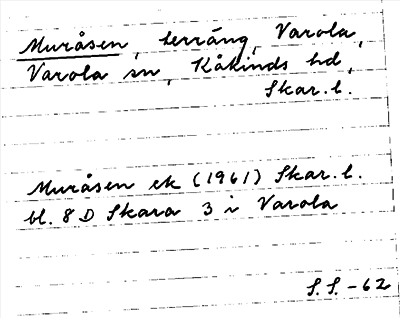 Muråsen, terräng, Varola,
Varola sn, Kåkinds hd,
Skar. l.
Muråsen ek (1961) Skar. l.
bl. 8 D Skara 3 i Varola
S. S. -62